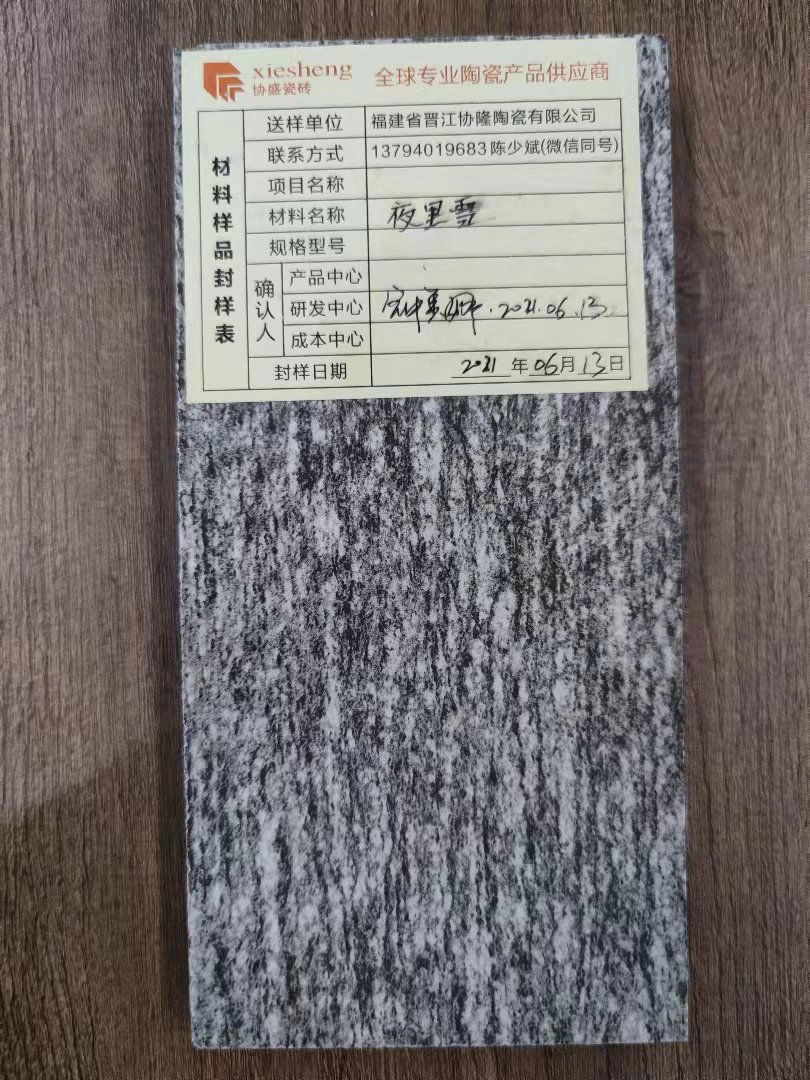 xiesheng
协盛瓷砖
全球专业陶瓷产品供应商
材料样品封样表
送样单位 福建省晋江协隆陶瓷有限公司
联系方式 13794019683 陈少斌(微信同号)
项目名称
材料名称 夜里雪
规格型号
确认人
产品中心
研发中心 2021.06.13
成本中心
封样日期 2021年06月13日